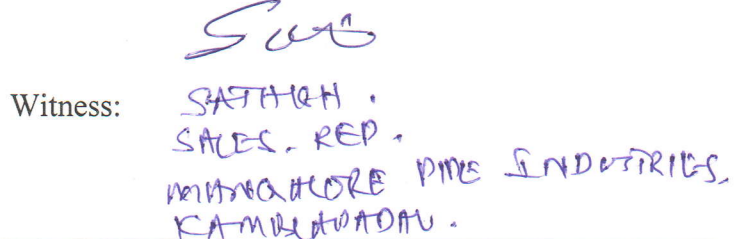 Witness: SATHISH.
SALES. REP.
MANGALORE PIPE INDUSTRIES.